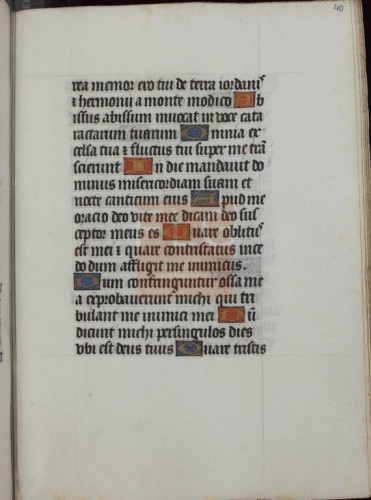 40
rea memor ero tui de terra iordanis
⁊ hermonii a monte modico Ab
issus abissum inuocat in uoce cata
ractarum tuarum Omnia ex
celsa tua ⁊ fluctus tui super me trā
sierunt In die mandauit do
minus misericordiam suam et
nocte canticum eius Apud me
oracio deo vite mee dicam deo sus
ceptor meus es Quare oblitus
est mei ⁊ quare contristatus ince
do dum affligit me inimicus.
Dum confringuntur ossa me
a exprobauerunt michi qui tri
bulant me inimici mei Dū
dicunt michi per singulos dies
vbi est deus tuus Quare tristis